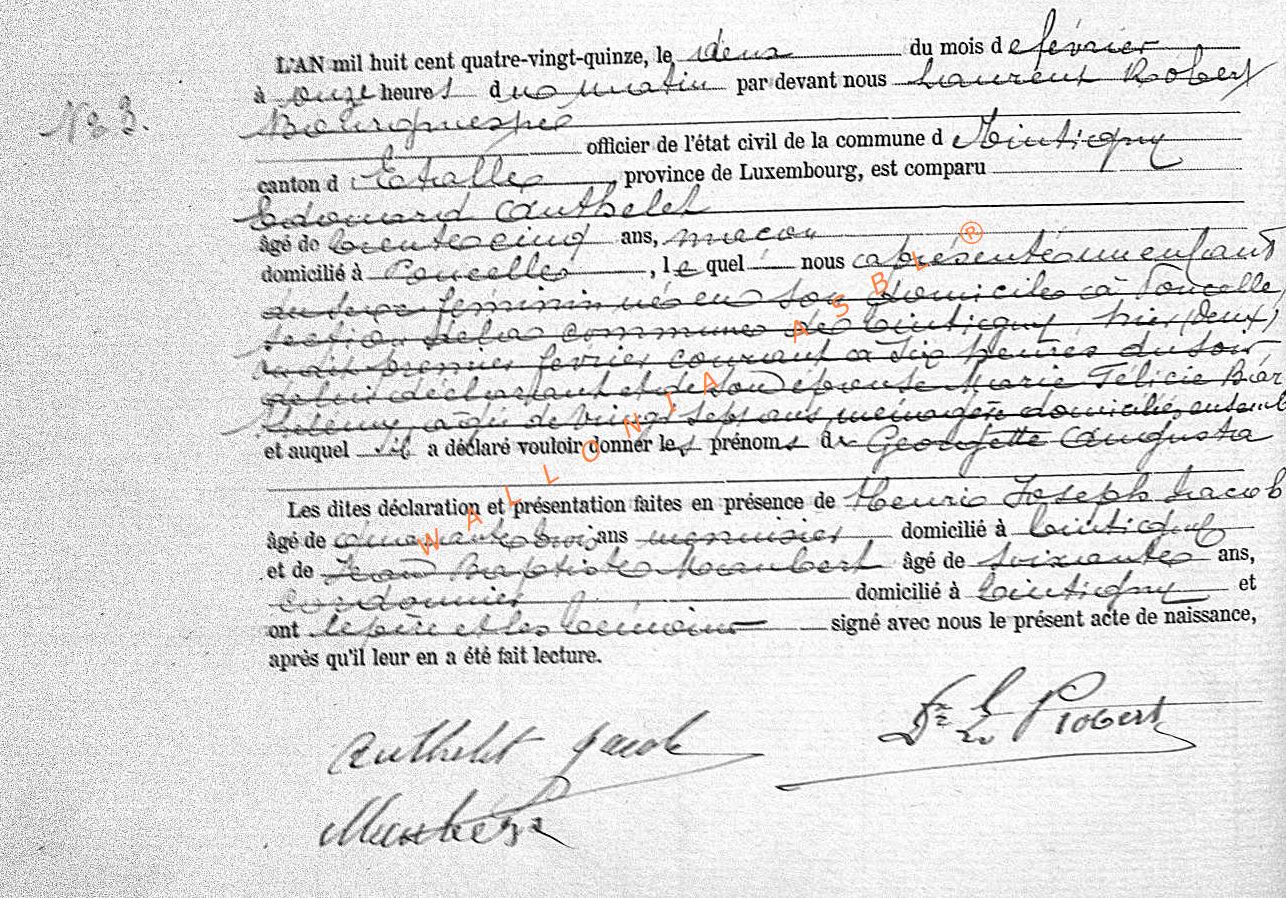 L'AN mil huit cent quatre-vingt-quinze, le deux du mois de février
à onze heures du matin par devant nous Laurent Robert
N° 3.
Bourgmestre
officier de l'état civil de la commune d Tintigny
canton d Etalle, province de Luxembourg, est comparu
Edouard Authelet
âgé de trente cinq ans, maçon
domicilié à Poncelle, lequel nous a présenté un enfant
du sexe féminin né en son domicile à Poncelle
section de la commune de Tintigny, hier
dit premier février courant à six heures du soir
de lui déclarant et de son épouse Marie Félicie Bar
thélemy, âgée de vingt sept ans ménagère domiciliée ensemble
et auquel il a déclaré vouloir donner les prénoms de Georgette Augusta
Les dites déclaration et présentation faites en présence de Henri Joseph Jacob
âgé de cinquante trois ans menuisier, domicilié à Tintigny
et de Jean Baptiste âgé de soixante ans,
cordonnier domicilié à Tintigny et
ont le père et les témoins signé avec nous le présent acte de naissance,
après qu'il leur en a été fait lecture.
Authelet Jacob Dr L Robert
WALLONIA ASBL ®